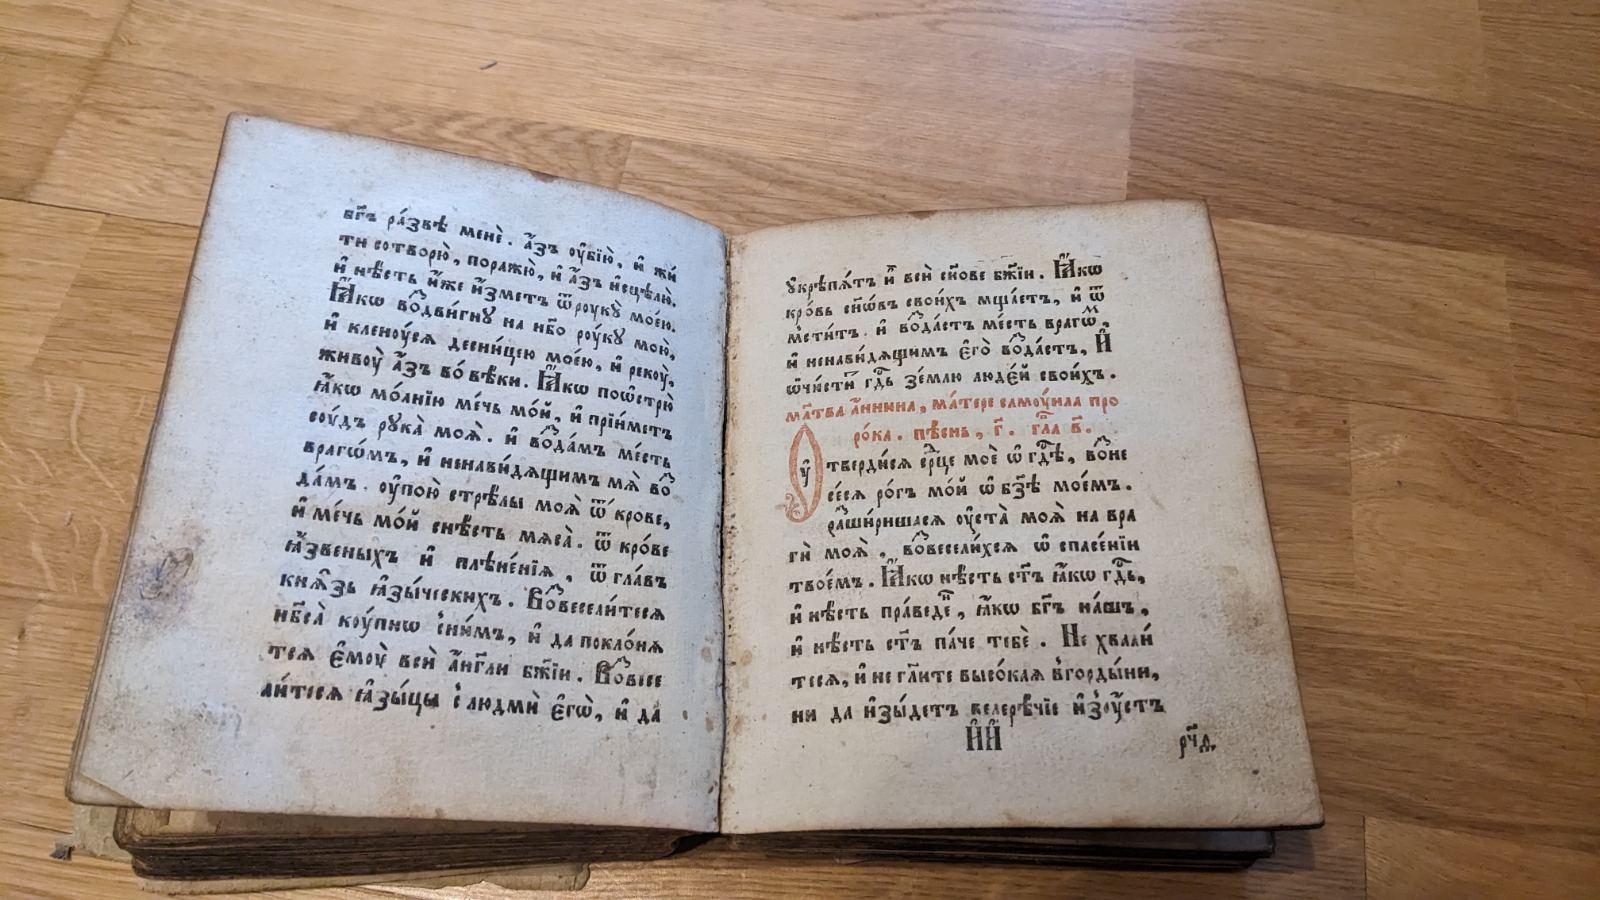 бг҃ъ ра́звѣ менѐ. а҆́зъ оу҆бїю̀, и҆ жи́
ти сотворю̀, поражю̀, и҆ а҆́зъ и҆сцѣлю̀.
и҆ нѣ́сть и҆́же и҆́зметъ ѿ роукꙋ̀ мое́ю.
Ꙗ҆́кѡ во́ⷥдви́гнꙋ на нб҃о роу́кꙋ мою̀,
и҆ кленоу́ся десни́цею мое́ю, и҆ рекоу̀,
живоу̀ а҆́зъ во́ вѣки. Ꙗ҆́кѡ поѡ҆стрю̀
ꙗ҆́кѡ мо́лнїю ме́чь мо́й, и҆ прїи́метъ
соу́дъ рꙋка̀ моѧ̀. и҆ во́ⷥда́мъ ме́сть
враго́мъ, и҆ ненави́дѧщимъ мѧ̀ во́ⷥ
да́мъ. оу҆пою̀ стрѣ́лы моѧ̀ ѿ кро́ве,
и҆ ме́чь мо́й снѣ́сть мѧса̀. ѿ кро́ве
ꙗ҆́звеныхъ и҆ плѣне́нїѧ, ѿ гла́въ
кнѧ̑зь ꙗ҆зы́ческихъ. Во́ⷥвесели́тесѧ
нб҃са̀ коу́пнѡ с̾ни́мъ, и҆ да покло́нѧ
тсѧ є҆моу̀ всѝ а҆́нг҃ли бж҃їи. Во́ⷥвесе
ли́тесѧ ꙗ҆зы́цы с̾ людмѝ є҆гѡ̀, и҆ да
ꙋкрѣпѧ́тъ и҆̀ всѝ сн҃ове бж҃їи. Ꙗ҆́кѡ
кро́вь сн҃ѡ́въ свои́хъ мща́етъ, и҆ ѿ
мсти́тъ. и҆ во́ⷥда́стъ ме́сть врагѡ́ⷨ,
и҆ ненави́дѧщимъ є҆го̀ во́ⷥда́стъ, И҆
ѡ҆чи́стит̾ гдⷭ҇ь зе́млю люде́й свои́хъ.
мл҃тва а҆́ннина, ма́тере самоу́ила про
ро́ка. пѣ́снь, г҃. гла́ в҃.
Оу҆твердисѧ ср҃це моѐ ѡ҆ гдⷭ҇ѣ, во́ⷥне
се́сѧ ро́гъ мо́й ѡ҆ бз҃ѣ мое́мъ.
ра́ⷭшири́шасѧ оу҆ста̀ моѧ̀ на вра
гѝ моѧ̀, во́ⷥвесели́хсѧ ѡ҆ спасе́нїи
твое́мъ. Ꙗ҆́кѡ нѣ́сть ст҃ъ ꙗ҆́кѡ гдⷭ҇ь,
и҆ нѣ́сть пра́веде́ⷩ, ꙗ҆́кѡ бг҃ъ на́шъ,
и҆ нѣ́сть ст҃ъ па́че тебѐ. Не хвали́
тесѧ, и҆ не гл҃ите высо́каѧ в̾горды́ни,
ни да и҆зы́детъ велерѣ́чїе и҆зоу́стъ
И҆И҆
рч҃д.